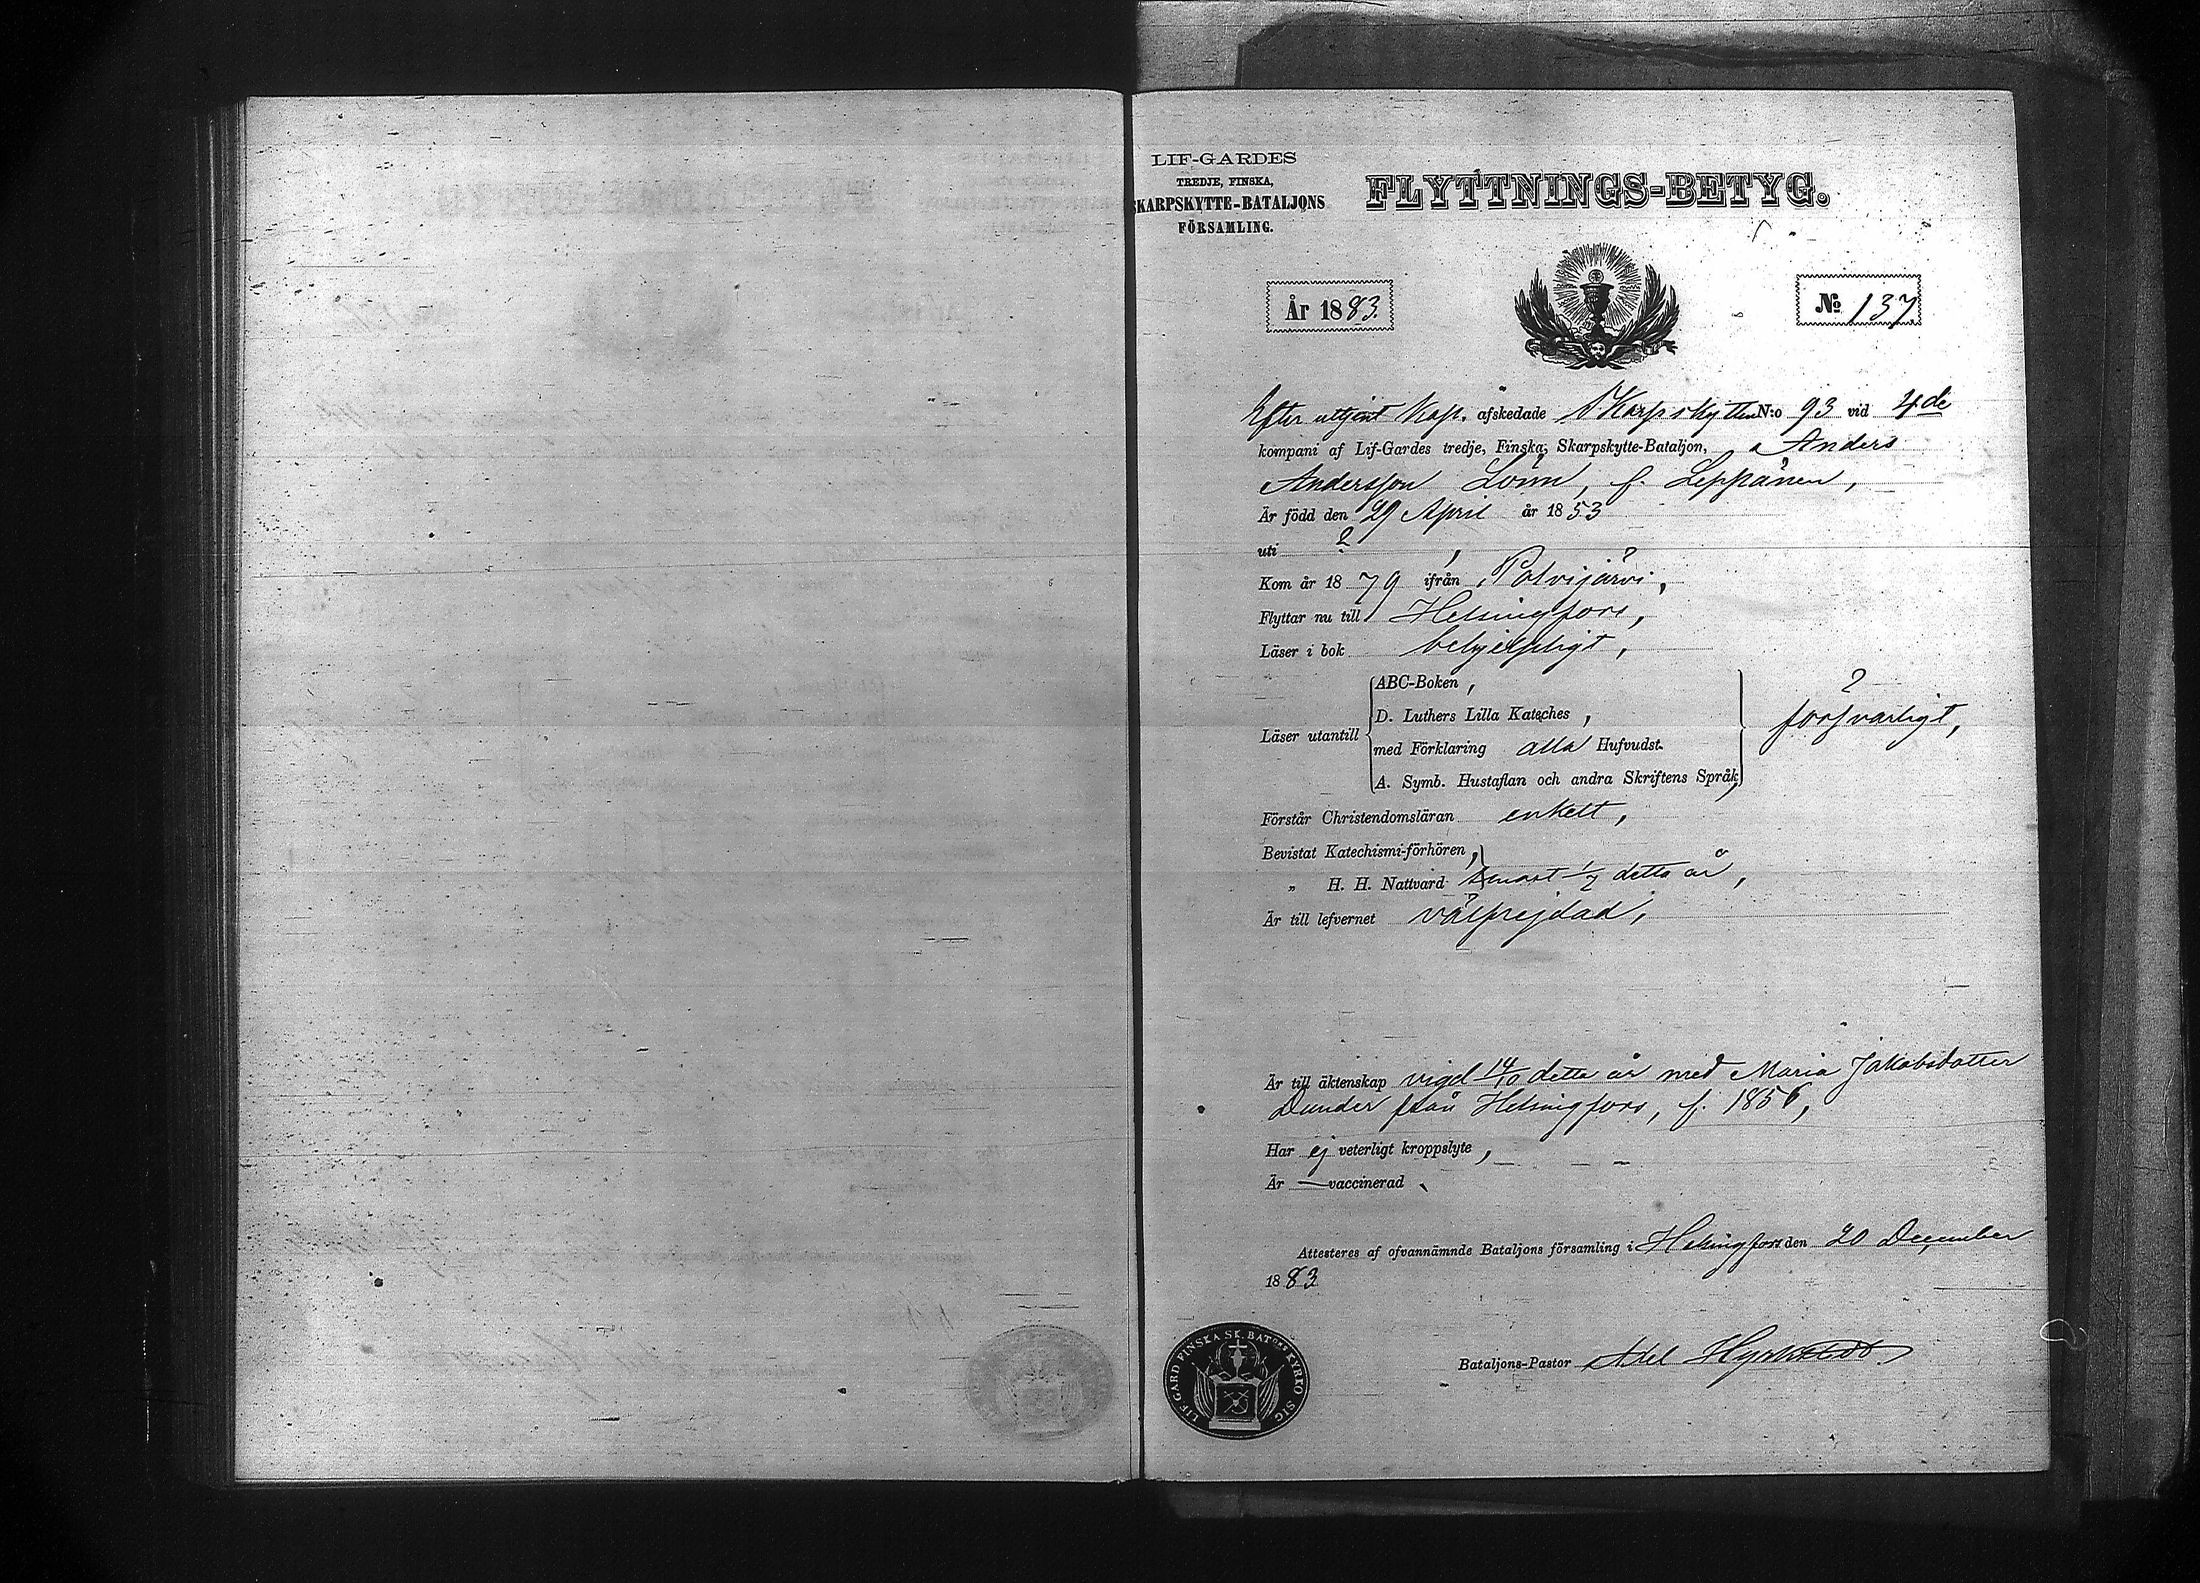 LIF-GARDES
TREDJE, FINSKA,
SKARPSKYTTE-BATALJONS
FÖRSAMLING.
FLYTTNINGS-BETYG.
År 1883.
No 137.
Efter uttjent Kap. afskedade Skarpskytten N:o 93 vid 4de
kompani af Lif-Gardes tredje, Finska, Skarpskytte-Bataljon, Anders
Andersson Lönn, f. Leppänen,
Är född den 29 April år 1853
uti ?
Kom år 1879 ifrån Polvijärvi,
Flyttar nu till Helsingfors,
Läser i bok behjelpligt,
ABC-Boken,
D. Luthers Lilla Kateches,
Läser utantill
med Förklaring alla Hufvudst.
A. Symb. Hustaflan och andra Skriftens Språk,
? försvarligt,
Förstår Christendomsläran enkelt,
Bevistat Katechismi-förhören,
„ H. H. Nattvard senast 1/7 detta år,
Är till lefvernet välfrejdad,
Är till äktenskap vigd 14/10 detta år med Maria Jakobsdotter
Dunder från Helsingfors, f. 1856,
Har ej veterligt kroppslyte,
Är — vaccinerad
Attesteres af ofvannämnde Bataljons församling i Helsingfors den 20 December
1883
Bataljons-Pastor Axel
LIF GARD FINSKA SK. BATONS KYRKO SIG